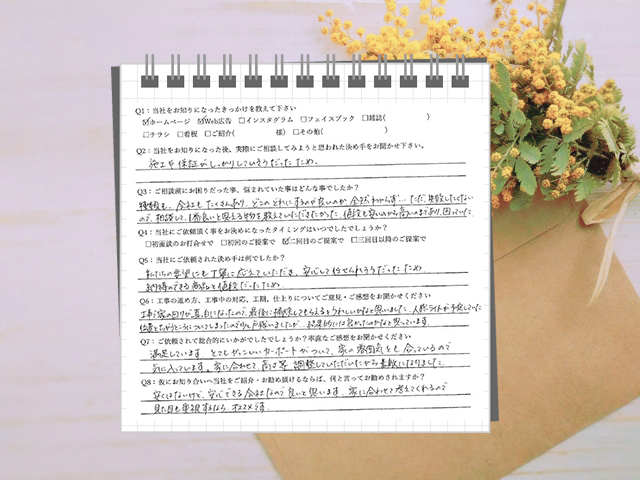 Q1：当社をお知りになったきっかけを教えて下さい
☑ホームページ ☑Web広告 □インスタグラム □フェイスブック □雑誌( )
□チラシ □看板 □ご紹介( 様) □その他( )
Q2：当社をお知りになった後、実際にご相談してみようと思われた決め手をお聞かせ下さい。
施工や保証がしっかりしていそうだったため.
Q3：ご相談前にお困りだった事、悩まれていた事はどんな事でしたか？
種類も、会社もたくさんあり、どこのどれにするのが良いのか全然わからず… ただ、失敗したくない
ので、相談して、1番良いと思えるものを教えていただきたかった。値段も安いのから高いのまであり、困っていた.
Q4：当社にご依頼頂く事をお決めになったタイミングはいつでしたでしょうか？
□初面談のお打合せで □初回のご提案で ☑二回目のご提案で □三回目以降のご提案で
Q5：当社にご依頼された決め手は何でしたか？
私たちの要望にも丁寧に応えていただき、安心して任せられそうだったため
納得のできる商品と値段だったため.
Q6：工事の進め方、工事中の対応、工期、仕上りについてご意見・ご感想をお聞かせください
工事で家の回りが真白になったので、最後に掃除してもらえるとうれしいかなと思いました. 人感ライトが予定していた
位置とちがうところについていましたので少し戸惑いましたが…結果的には良かったのかなと思っています.
Q7：ご依頼されて総合的にいかがでしたでしょうか？率直なご感想をお聞かせください
満足しています. とてもかっこいいカーポートがついて、家の雰囲気とも合っているので
気に入っています。家に合わせて高さ等調整していただいたから素敵になりました.
Q8：仮にお知り合いへ当社をご紹介・お勧め頂けるならば、何と言ってお勧めされますか？
安くはないけど、安心できる会社なので良いと思います. 家に合わせて考えてくれるので
見た目も重視するなら、オススメです.